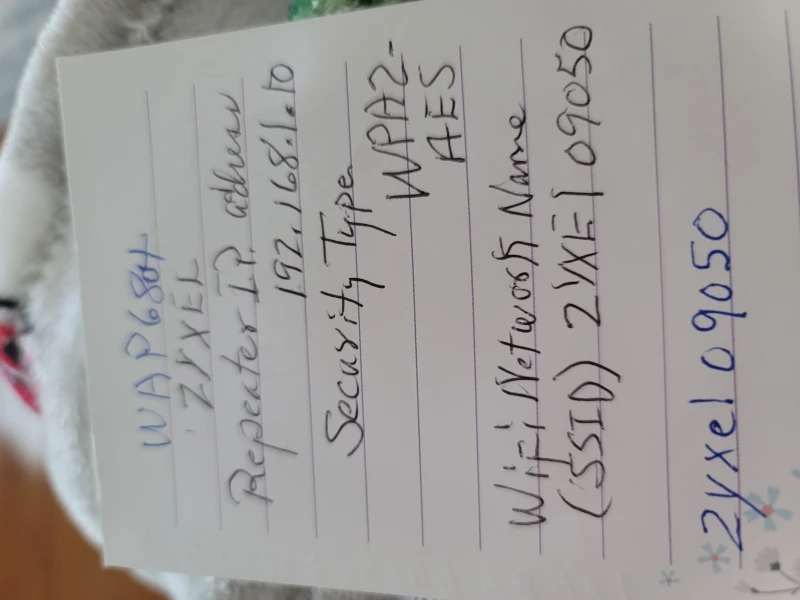 WAP6804
ZYXEL
Repeater I.P. address
192.168.1.10
Security Type
WPA2-
AES
Wifi Network Name
(SSID) ZYXEl 09050
Zyxel 09050